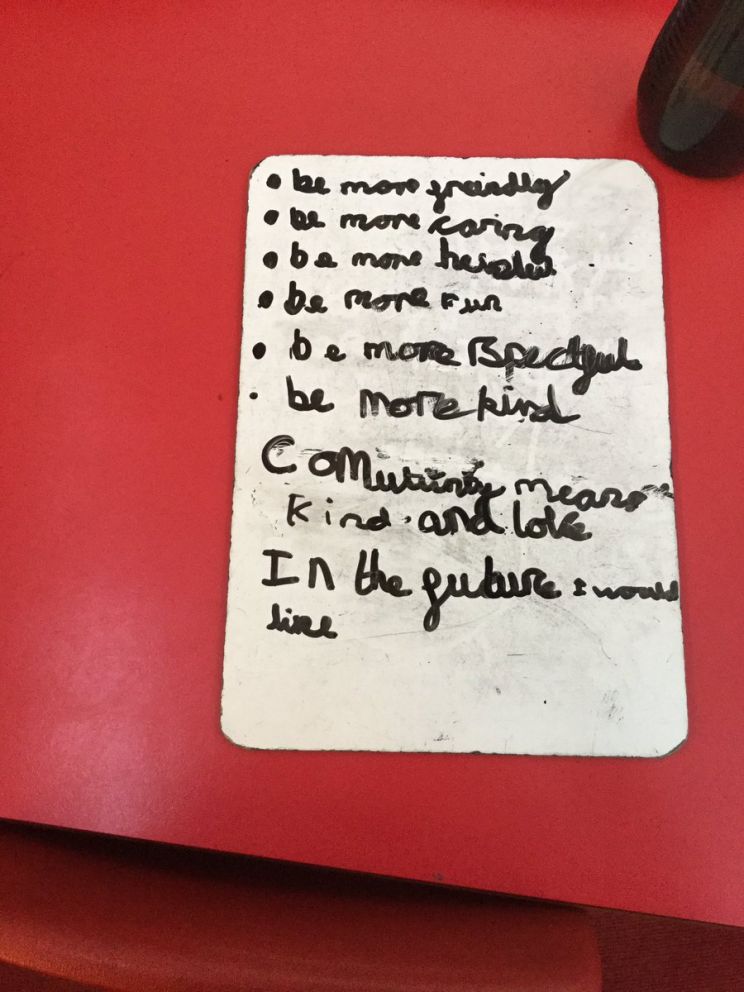 • be more freindly
• be more caring
• be more
• be more Fun
• be more
• be more kind
means
kind and love
In the future I would
like